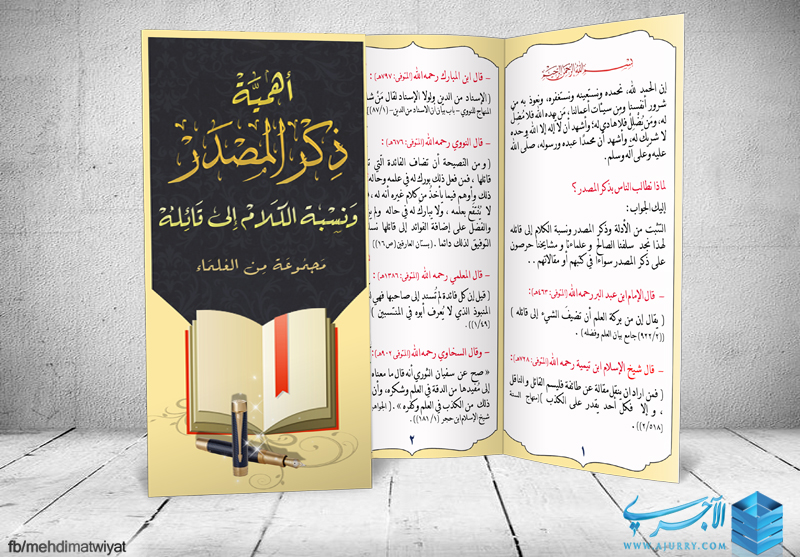 أهميَّة
ذِكْر المَصْدَر
وَنِسْبَة الكَلَامْ إِلى قَائِلهْ
مَجمُوعَة مِن العُلمَاء
بسم الله الرحمن الرحيم
إن الحمد لله، نحمده ونستعينه ونستغفره، ونعوذ به من
شرور أنفسنا ومن سيئات أعمالنا، مَن يهده الله فلا مُضِلَّ
له، ومَن يُضْلِلْ فلا هادي له؛ وأشهد أن لا إله إلا الله وحده
لا شريك له، وأشهد أن محمدًا عبده ورسوله، صلى الله
عليه وعلى آله وسلم.
لماذا نطالب الناس بذكر المصدر؟
إليك الجواب:
التثبت من الأدلة وذكر المصدر ونسبة الكلام إلى قائله
لهذا نجد سلفنا الصالح و علماءنا و مشايخنا حرصون
على ذكر المصدر سواءًا في كتبهم أو مقالاتهم ..
– قال الإمام ابن عبد البر رحمه الله (المتوفى: ٤٦٣هـ):
( يقال إن من بركة العلم أن تضيفَ الشيء إلى قائله )
((٩٢٢/٢) جامع بيان العلم وفضله).
– قال شيخ الإسلام ابن تيمية رحمه الله (المتوفى: ٧٢٨هـ):
( فمن اراد ان ينقل مقالة عن طائفة فليسم القائل و الناقل
، و إلا فكلّ أحد يقدر على الكذب )(منهاج السنة
(٥١٨/٢)).
١
– قال ابن المبارك رحمه الله (المتوفى: ٧٩٧هـ):
( الإسناد من الدين ولولا الإسناد لقال مَنْ
المنهاج للنووي – باب بيان أن الاسناد من الدين– (٨٧/١))
– قال النووي رحمه الله (المتوفى: ٦٧٦هـ):
( و من النصيحة أن تضاف الفائدة التي
قائلها ، فمن فعل ذلك بورك له في علمه وحاله
ذلك وأوهم فيما يأخذُ من كلام غيره أنه له ،
لا يُنتفَع بعلمه ، ولا يبارك له في حاله ولم
والفضل على إضافة الفوائد إلى قائلها
التوفيق لذلك دائما . (بستان العارفين (ص١٦)
– قال المعلمي رحمه الله (المتوفى: ١٣٨٦هـ):
( قيل إن كل فائدة لم تُسند إلى صاحبها فهي
المنبوذ الذي لا يُعرف أبوه في المنتسبين )
(٤٩/١)).
– وقال السخاوي رحمه الله (المتوفى: ٩٠٢هـ
« صح عن سفيان الثوري أنه قال ما معناه
إلى مُفيدها من الدقة في العلم وشكره، وأن
ذلك من الكذب في العلم وكفره » . (الجواهر
شيخ الإسلام ابن حجر (١٨١/١)).
٢
الآجري
WWW.AJURRY.COM
fb/mehdimatwiyat